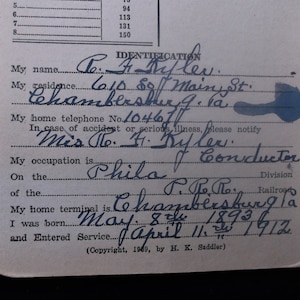 5. 75
6. 94
7. 113
8. 131
150
IDENTIFICATION
My name R. H. Kyler.
My residence 610 So Main St.
Chambersburg. Pa
My home telephone No. 10467
In case of accident or serious illness, please notify
Mrs R. H. Kyler.
My occupation is Conductor
On the Phila Division
of the P.R.R. Railroad
My home terminal is Chambersburg Pa
I was born May. 8th 1893
and Entered Service April 11th 1912
(Copyright, 1939, by H. K. Saddler)